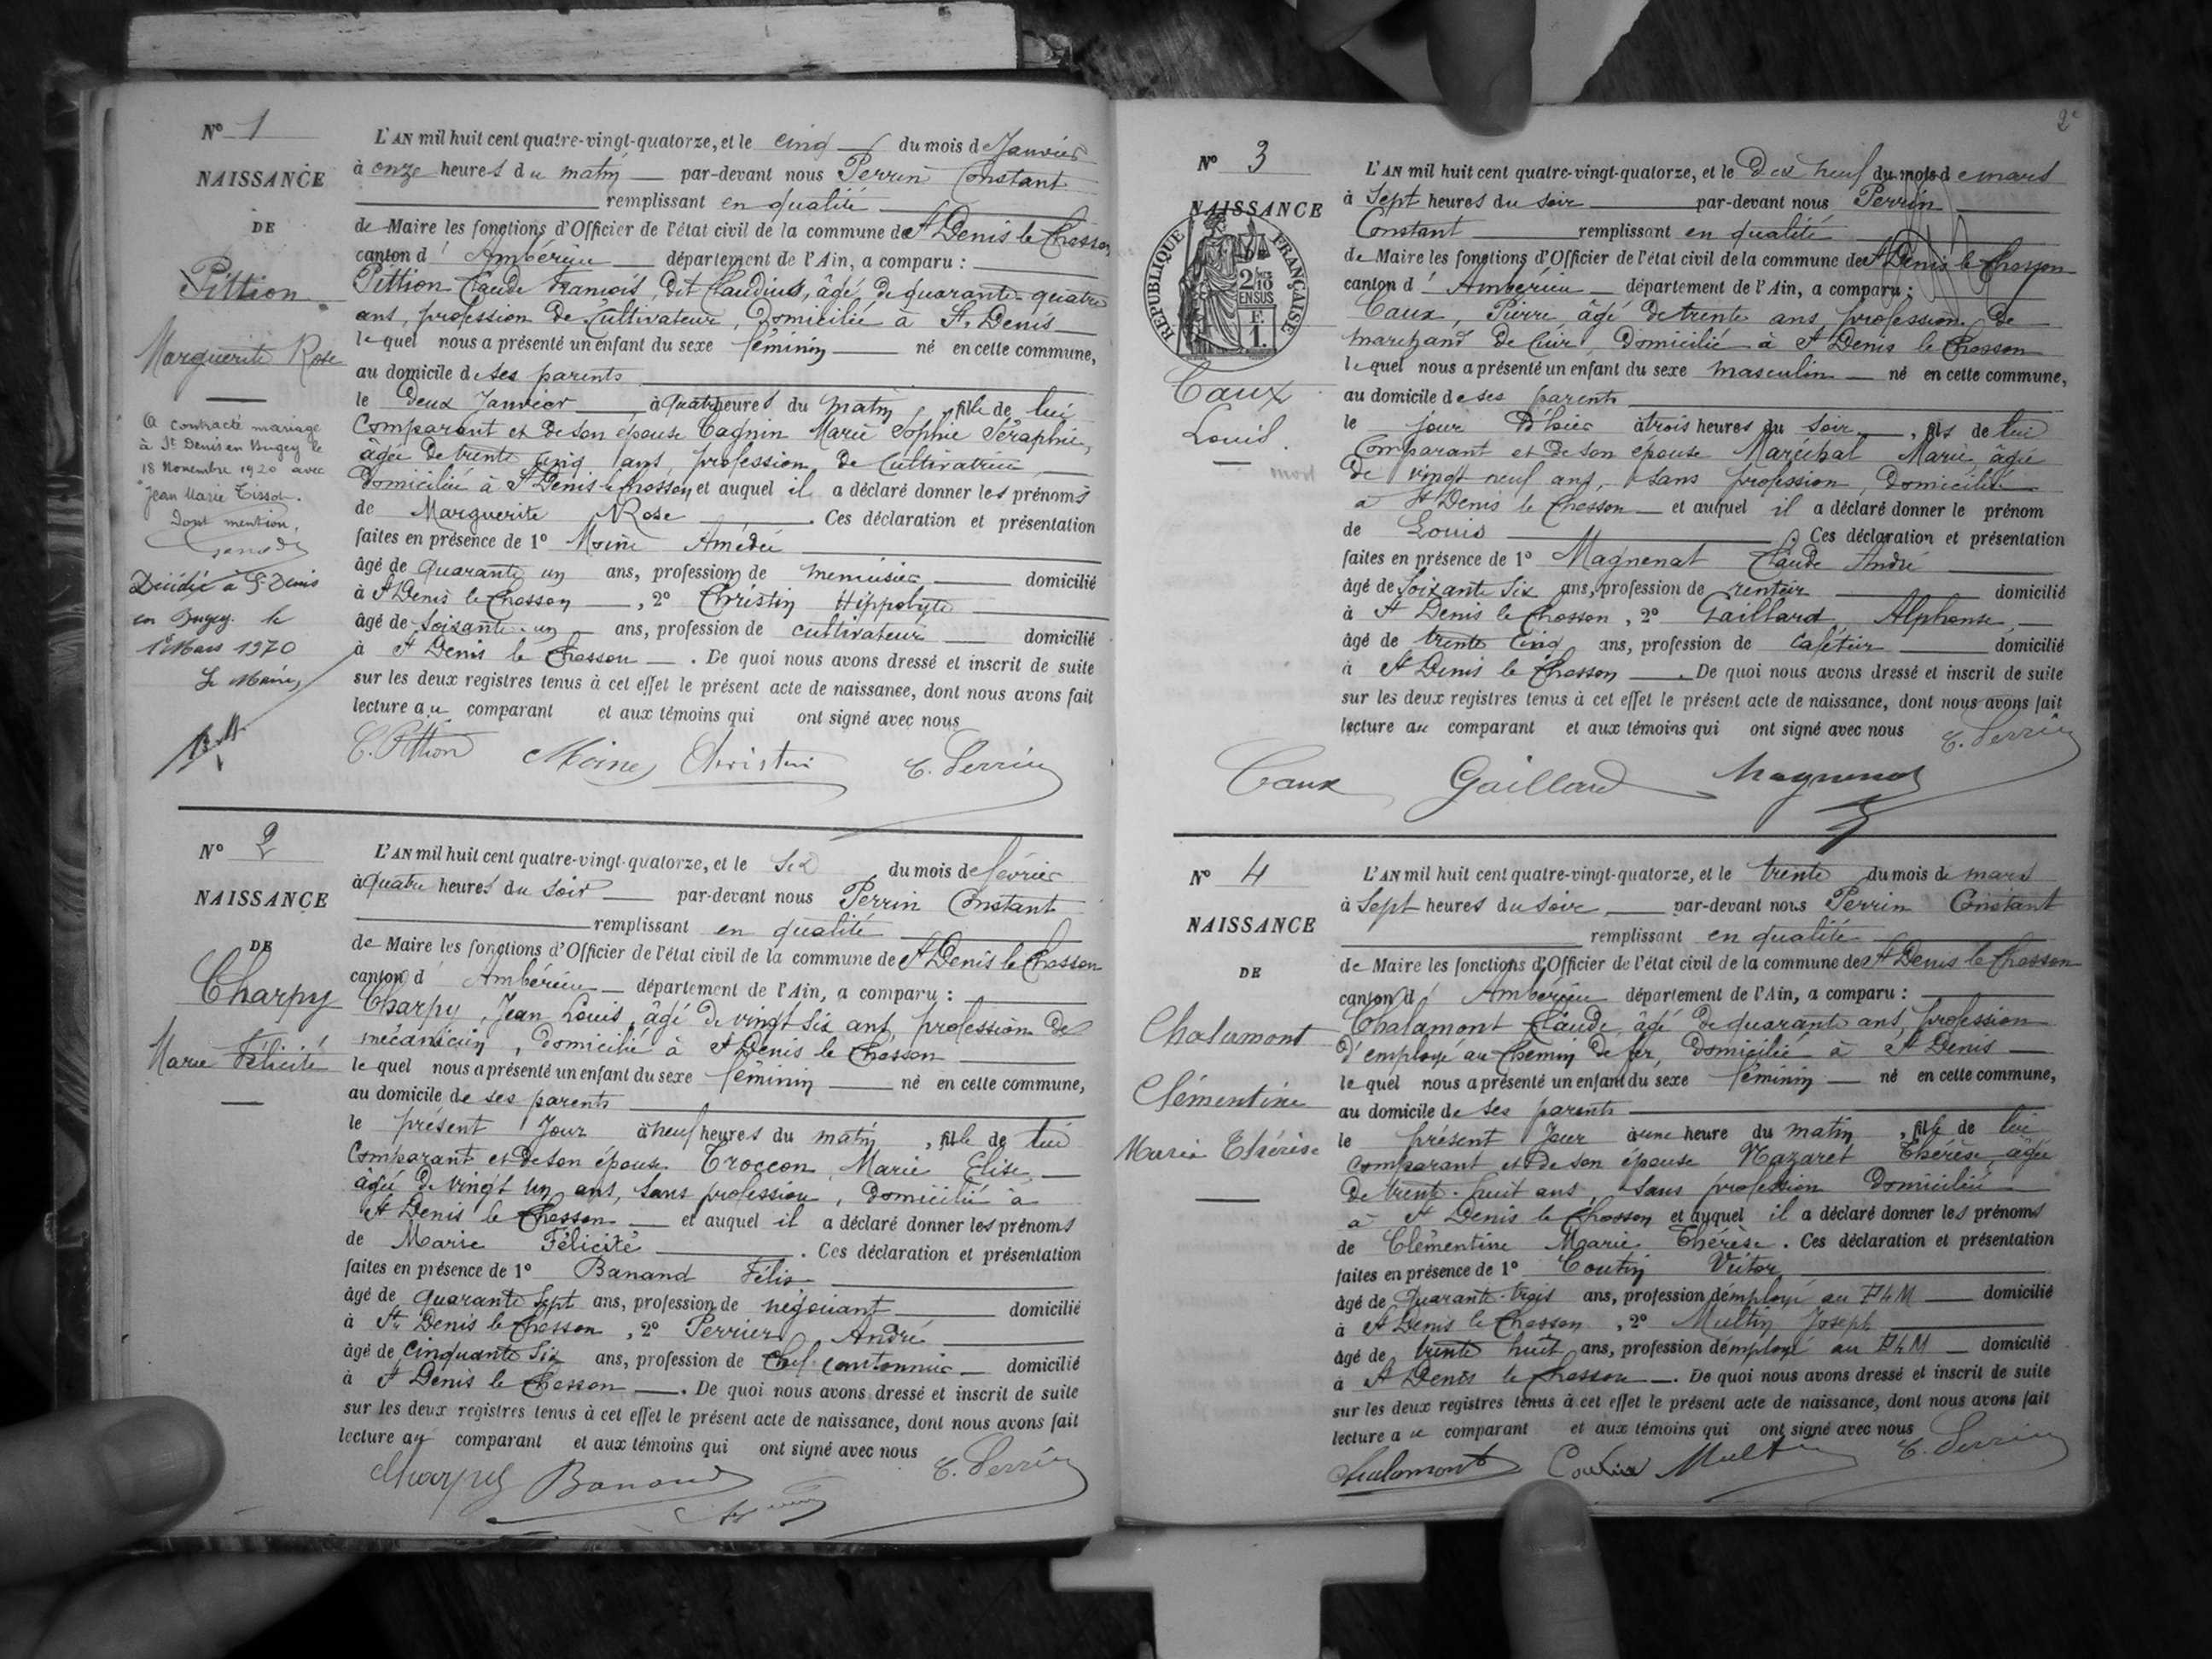 N° 1
NAISSANCE
DE
Pittion
Marguerite Rose
a contracté mariage
à St Denis en Bugey le
18 Novembre 1920 avec
Jean Marie Tissot.
Dont mention,
Décédée à St Denis
en Bugey le
1er Mars 1970
Le Maire,
L'AN mil huit cent quatre-vingt-quatorze, et le cinq du mois de Janvier
à onze heures du matin par-devant nous Perrin Constant
remplissant en qualité
de Maire les fonctions d'Officier de l'état civil de la commune de St Denis le Chosson
canton d' Ambérieu département de l'Ain, a comparu :
Pittion Claude François, dit Claudius, âgé de quarante quatre
ans, profession de Cultivateur, Domicilié à St. Denis
lequel nous a présenté un enfant du sexe féminin né en cette commune,
au domicile de ses parents
le deux Janvier à quatre heures du matin, fille de lui
Comparant et de son épouse Cagnin Marie Sophie Séraphie,
âgée de trente cinq ans, profession de Cultivatrice
Domiciliée à St Denis le Chosson et auquel il a déclaré donner les prénoms
de Marguerite Rose. Ces déclaration et présentation
faites en présence de 1° Moine Amédée
âgé de quarante un ans, profession de menuisier domicilié
à St Denis le Chosson, 2° Christin Hippolyte
âgé de soixante-un ans, profession de cultivateur domicilié
à St Denis le Chosson. De quoi nous avons dressé et inscrit de suite
sur les deux registres tenus à cet effet le présent acte de naissance, dont nous avons fait
lecture au comparant et aux témoins qui ont signé avec nous
C. Pittion Moine Christin C. Perrin
N° 2
NAISSANCE
DE
Charpy
Marie Félicité
L'AN mil huit cent quatre-vingt-quatorze, et le six du mois de février
à quatre heures du soir par-devant nous Perrin Constant
remplissant en qualité
de Maire les fonctions d'Officier de l'état civil de la commune de St Denis le Chosson
canton d' Ambérieu département de l'Ain, a comparu :
Charpy, Jean Louis, âgé de vingt six ans, profession de
mécanicien, domicilié à St Denis le Chosson
lequel nous a présenté un enfant du sexe féminin né en cette commune,
au domicile de ses parents
le présent Jour à neuf heures du matin, fille de lui
Comparant et de son épouse Troccon, Marie Elise,
âgée de vingt un ans, sans profession, domiciliée à
St Denis le Chosson et auquel il a déclaré donner les prénoms
de Marie Félicité. Ces déclaration et présentation
faites en présence de 1° Banand Félix
âgé de quarante sept ans, profession de négociant domicilié
à St Denis le Chosson, 2° Perrier, André
âgé de cinquante six ans, profession de Chef cantonnier domicilié
à St Denis le Chosson. De quoi nous avons dressé et inscrit de suite
sur les deux registres tenus à cet effet le présent acte de naissance, dont nous avons fait
lecture au comparant et aux témoins qui ont signé avec nous
Charpy Banand C. Perrin
2e
N° 3
NAISSANCE
RÉPUBLIQUE FRANÇAISE
2/10 EN SUS
F. 1.
Caux
Louis
L'AN mil huit cent quatre-vingt-quatorze, et le Dix neuf du mois de mars
à Sept heures du soir par-devant nous Perrin
Constant remplissant en qualité
de Maire les fonctions d'Officier de l'état civil de la commune de St Denis le Chosson
canton d' Ambérieu département de l'Ain, a comparu :
Caux, Pierre âgé de trente ans profession de
marchand de Cuir, Domicilié à St Denis le Chosson
lequel nous a présenté un enfant du sexe masculin né en cette commune,
au domicile de ses parents
le jour d'hier à trois heures du soir, fils de lui
Comparant et de son épouse Maréchal Marie, âgée
de vingt neuf ans, sans profession, Domiciliée
à St Denis le Chosson et auquel il a déclaré donner le prénom
de Louis. Ces déclaration et présentation
faites en présence de 1° Magnenat Claude André
âgé de soixante six ans, profession de rentier domicilié
à St Denis le Chosson, 2° Gaillard, Alphonse,
âgé de trente cinq ans, profession de cafetier domicilié
à St Denis le Chosson. De quoi nous avons dressé et inscrit de suite
sur les deux registres tenus à cet effet le présent acte de naissance, dont nous avons fait
lecture au comparant et aux témoins qui ont signé avec nous C. Perrin
Caux Gaillard Magnenat
N° 4
NAISSANCE
DE
Chalamont
Clémentine
Marie Thérèse
L'AN mil huit cent quatre-vingt-quatorze, et le trente du mois de mars
à Sept heures du soir par-devant nous Perrin Constant
remplissant en qualité
de Maire les fonctions d'Officier de l'état civil de la commune de St Denis le Chosson
canton d' Ambérieu département de l'Ain, a comparu :
Chalamont Claude, âgé de quarante ans, profession
d'employé au Chemin de fer, Domicilié à St Denis
lequel nous a présenté un enfant du sexe féminin né en cette commune,
au domicile de ses parents
le présent Jour à une heure du matin, fille de lui
comparant et de son épouse Nazaret Thérèse, âgée
de trente-huit ans, sans profession Domiciliée
à St Denis le Chosson et auquel il a déclaré donner les prénoms
de Clémentine Marie Thérèse. Ces déclaration et présentation
faites en présence de 1° Coutin Victor
âgé de Quarante-trois ans, profession d'employé au PLM domicilié
à St Denis le Chosson, 2° Multin Joseph
âgé de trente huit ans, profession d'employé au PLM domicilié
à St Denis le Chosson. De quoi nous avons dressé et inscrit de suite
sur les deux registres tenus à cet effet le présent acte de naissance, dont nous avons fait
lecture au comparant et aux témoins qui ont signé avec nous
Chalamont Coutin Multin C. Perrin